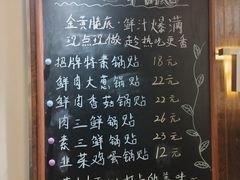 金黄脆底·鲜汁爆满
现点现做 趁热吃更香
招牌特素锅贴 18元
鲜肉大葱锅贴 22元
鲜肉香菇锅贴 22元
肉三鲜锅贴 26元
素三鲜锅贴 23元
韭菜鸡蛋锅贴 12元